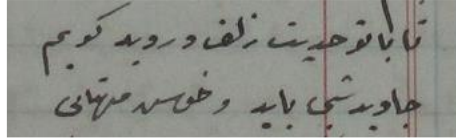 تا با تو حدیث زلف و روید گویم
جاوید شبی باید و خوش مهتابی